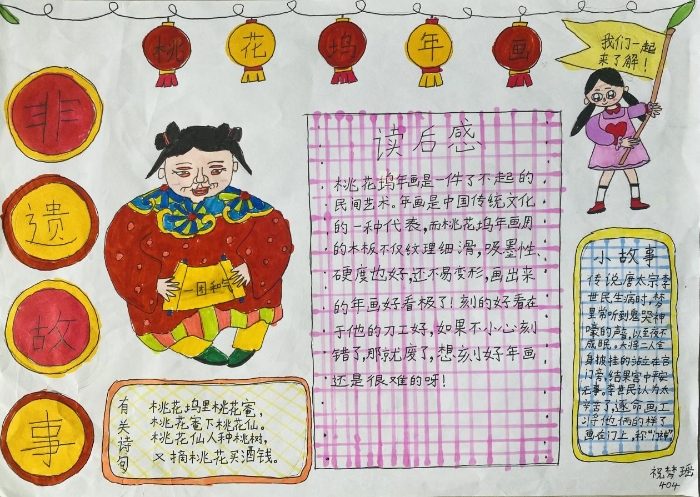 桃花坞年画
我们一起
来了解！
非
遗
故
事
一团和气
读后感
桃花坞年画是一件了不起的
民间艺术。年画是中国传统文化
的一种代表，而桃花坞年画用
的木板不仅纹理细滑，吸墨性、
硬度也好，还不易变形，画出来
的年画好看极了！刻的好看在
于他的刀工好，如果不小心刻
错了，那就废了，想刻好年画
还是很难的呀！
有关诗句
桃花坞里桃花庵，
桃花庵下桃花仙。
桃花仙人种桃树，
又摘桃花买酒钱。
小故事
传说唐太宗李
世民生病时，梦
里常听到鬼哭神
嚎的声，以至夜不
成眠。
身披挂的站立在宫
门旁，结果宫中平安
无事。李世民认为太
辛苦了，遂命画工
将他俩的样子
画在门上，称“门神”。
祝梦瑶
404